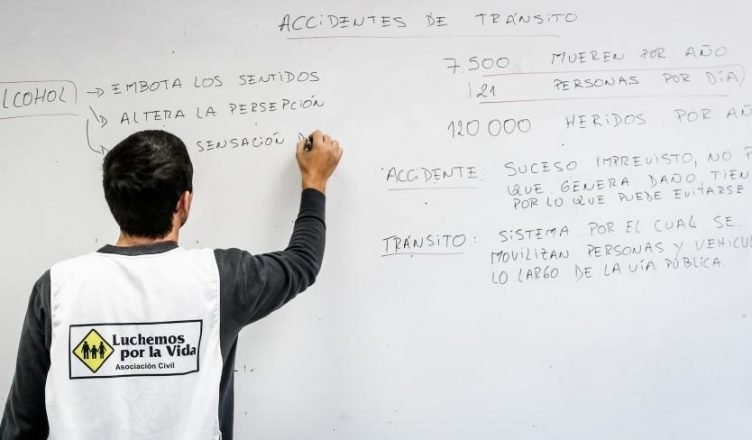 ACCIDENTES DE TRÁNSITO
LCOHOL → EMBOTA LOS SENTIDOS
ALTERA LA PERSEPCIÓN
SENSACIÓN
7.500 MUEREN POR AÑO
21 PERSONAS POR DÍA
120 000 HERIDOS POR AÑ
ACCIDENTE: SUCESO IMPREVISTO, NO P
QUE GENERA DAÑO, TIEN
POR LO QUE PUEDE EVITARSE
TRÁNSITO: SISTEMA POR EL CUAL SE
MOVILIZAN PERSONAS Y VEHICUL
LO LARGO DE LA VÍA PÚBLICA.
Luchemos
por la Vida
Asociación Civil